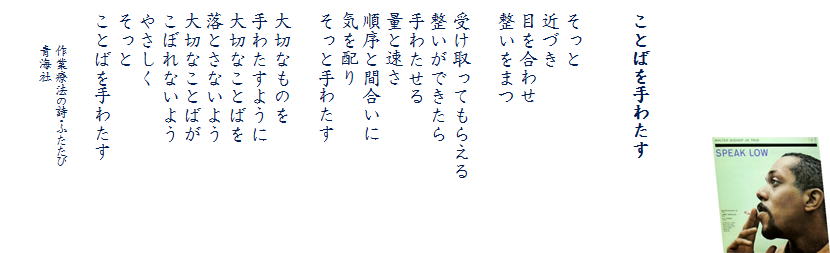 ことばを手わたす
そっと
近づき
目を合わせ
整いをまつ
受け取ってもらえる
整いができたら
手わたせる
量と速さ
順序と間合いに
気を配り
そっと手わたす
大切なものを
手わたすように
大切なことばを
落とさないよう
大切なことばが
こぼれないよう
やさしく
そっと
ことばを手わたす
作業療法の詩・ふたたび
青海社
SPEAK LOW